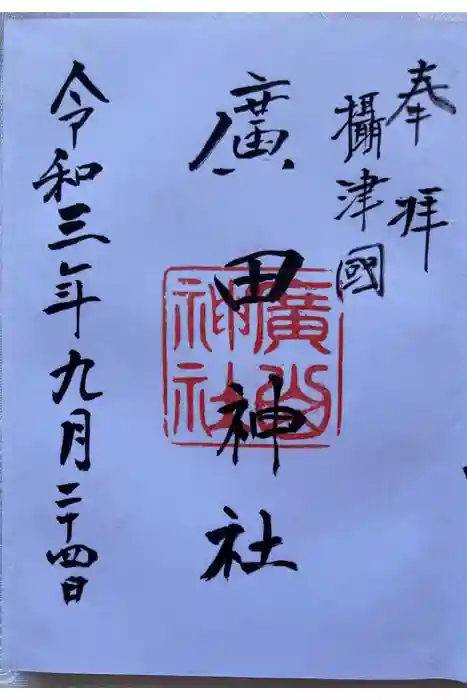 奉拝
攝津國
廣田神社
廣田
神社
令和三年九月二十四日